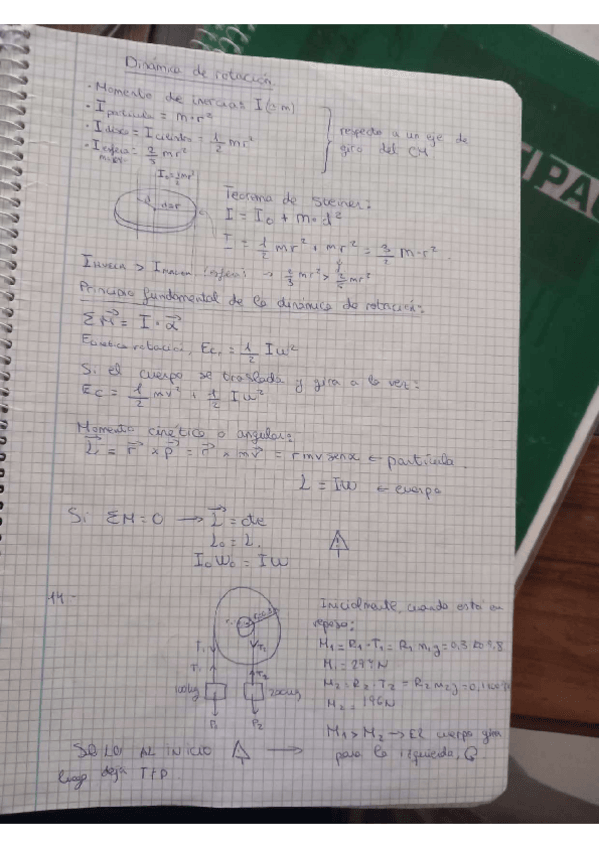 Dinámica de rotación
· Momento de inercia: I (≃ m)
· I partícula = m · r²
· I disco = I cilindro = 1/2 mr²
· I esfera maciza = 2/5 mr²
} respecto a un eje de giro del CM
I₀ = 1/2 mr²
d=r
Teorema de Steiner:
I = I₀ + m · d²
I = 1/2 mr² + mr² = 3/2 m · r²
I hueca > I maciza (esfera) → 2/3 mr² > 2/5 mr²
Principio fundamental de la dinámica de rotación:
ΣM⃗ = I · α⃗
rotación, Ec, = 1/2 Iω²
Si el cuerpo se traslada y gira a la vez:
Ec = 1/2 mv² + 1/2 Iω²
Momento cinético o angular:
L⃗ = r⃗ × p⃗ = r⃗ × mv⃗ = rmv senα ← partícula
L = Iω ← cuerpo
Si ΣM=0 → L⃗ = cte
L₀ = L.
I₀ω₀ = Iω
14.-
T₁
T₁
T₂
T₂
100kg
200kg
P₁
P₂
Inicialmente, cuando está en reposo:
M₁ = R₁ · T₁ = R₁ m₁g = 0,3 · 100 · 9,8
M₁ = 294N
M₂ = R₂ · T₂ = R₂ m₂g = 0,1
M₂ = 196N
M₁ > M₂ → El cuerpo gira
para la izquierda,
SOLO AL INICIO →
luego deja T≠P.